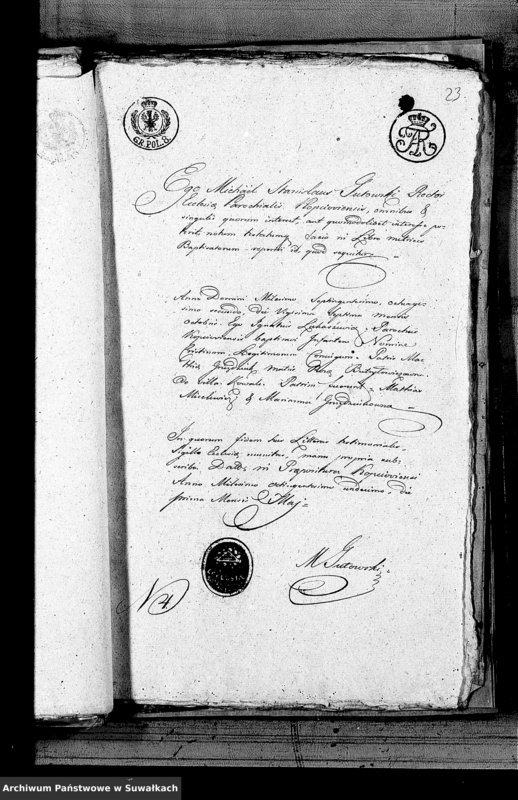 23
GR.POL.8.
FAR
Ego Michael Stanislaus Gutowski Rector
Ecclesiae Parochialis Kopcioviensis, omnibus &
singulis quorum interest, aut quomodolibet interesse po-
terit, notum testatumq facio in Libro metrices
Baptisatorum reperiri id quod sequitur
Anno Domini Milesimo Septingentesimo, octuages-
simo secundo, die Vigesima Septima mensis
octobris. Ego Ignatius Lukaszewicz Parochus
Kopcioviensis baptisavi Infantem Nomine
Legitimorum Conjugum. Patris Mat-
thiae Matris
de Villa Kowali. Patrini fuerunt Mathias
Micelewicz & Marianna
In quorum fidem has Litteras testimoniales
Sigillo Ecclesiae munitas, manu propria sub-
scribo. Datt, in Praepositura Kopcioviensi
Anno Milesimo octingentesimo undecimo, die
prima Mensis Maj
M Gutowski
N 4
Archiwum Państwowe w Suwałkach